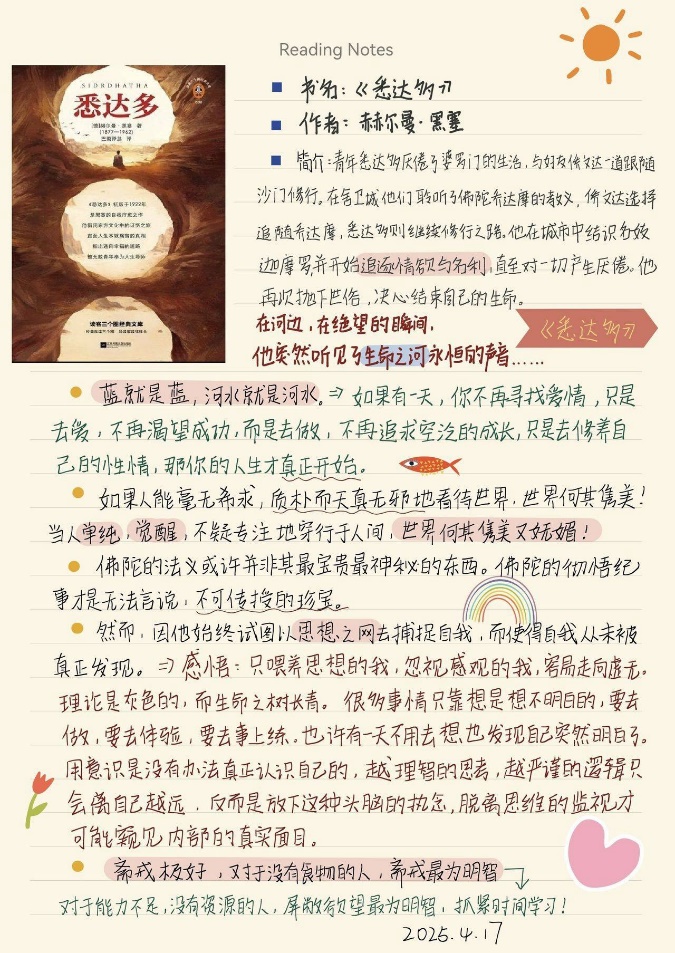 Reading Notes
SIDDHATHA
悉达多
[德]赫尔曼·黑塞 著
(1877—1962)
《悉达多》初版于1922年
读客三个圈经典文库
书名:《悉达多》
作者:赫尔曼·黑塞
简介:青年悉达多厌倦了婆罗门的生活,与好友侨文达一道跟随
沙门修行。在舍卫城他们聆听了佛陀乔达摩的教义,侨文达选择
追随乔达摩,悉达多则继续修行之路。他在城市中结识名妓
迦摩罗并开始追逐情欲与名利,直至对一切产生厌倦。他
再次抛下世俗,决心结束自己的生命。
在河边,在绝望的瞬间,
他突然听见了生命之河永恒的声音……
《悉达多》
蓝就是蓝,河水就是河水。⇒如果有一天,你不再寻找爱情,只是
去爱,不再渴望成功,而是去做,不再追求空泛的成长,只是去修养自
己的性情,那你的人生才真正开始。
如果人能毫无希求,质朴而天真无邪地看待世界,世界何其隽美!
当人单纯,觉醒,不疑专注地穿行于人间,世界何其隽美又妩媚!
佛陀的法义或许并非其最宝贵最神秘的东西。佛陀的彻悟纪
事才是无法言说,不可传授的珍宝。
然而,因他始终试图以思想之网去捕捉自我,而使得自我从未被
真正发现。⇒感悟:只喂养思想的我,忽视感观的我,容易走向虚无。
理论是灰色的,而生命之树长青。很多事情只靠想是想不明白的,要去
做,要去体验,要去事上练。也许有一天不用去想也发现自己突然明白了。
用意识是没有办法真正认识自己的,越理智的思考,越严谨的逻辑只
会离自己越远,反而是放下这种头脑的执念,脱离思维的监视才
可能窥见内部的真实面目。
斋戒极好,对于没有食物的人,斋戒最为明智
对于能力不足,没有资源的人,屏散欲望最为明智,抓紧时间学习!
2025.4.17